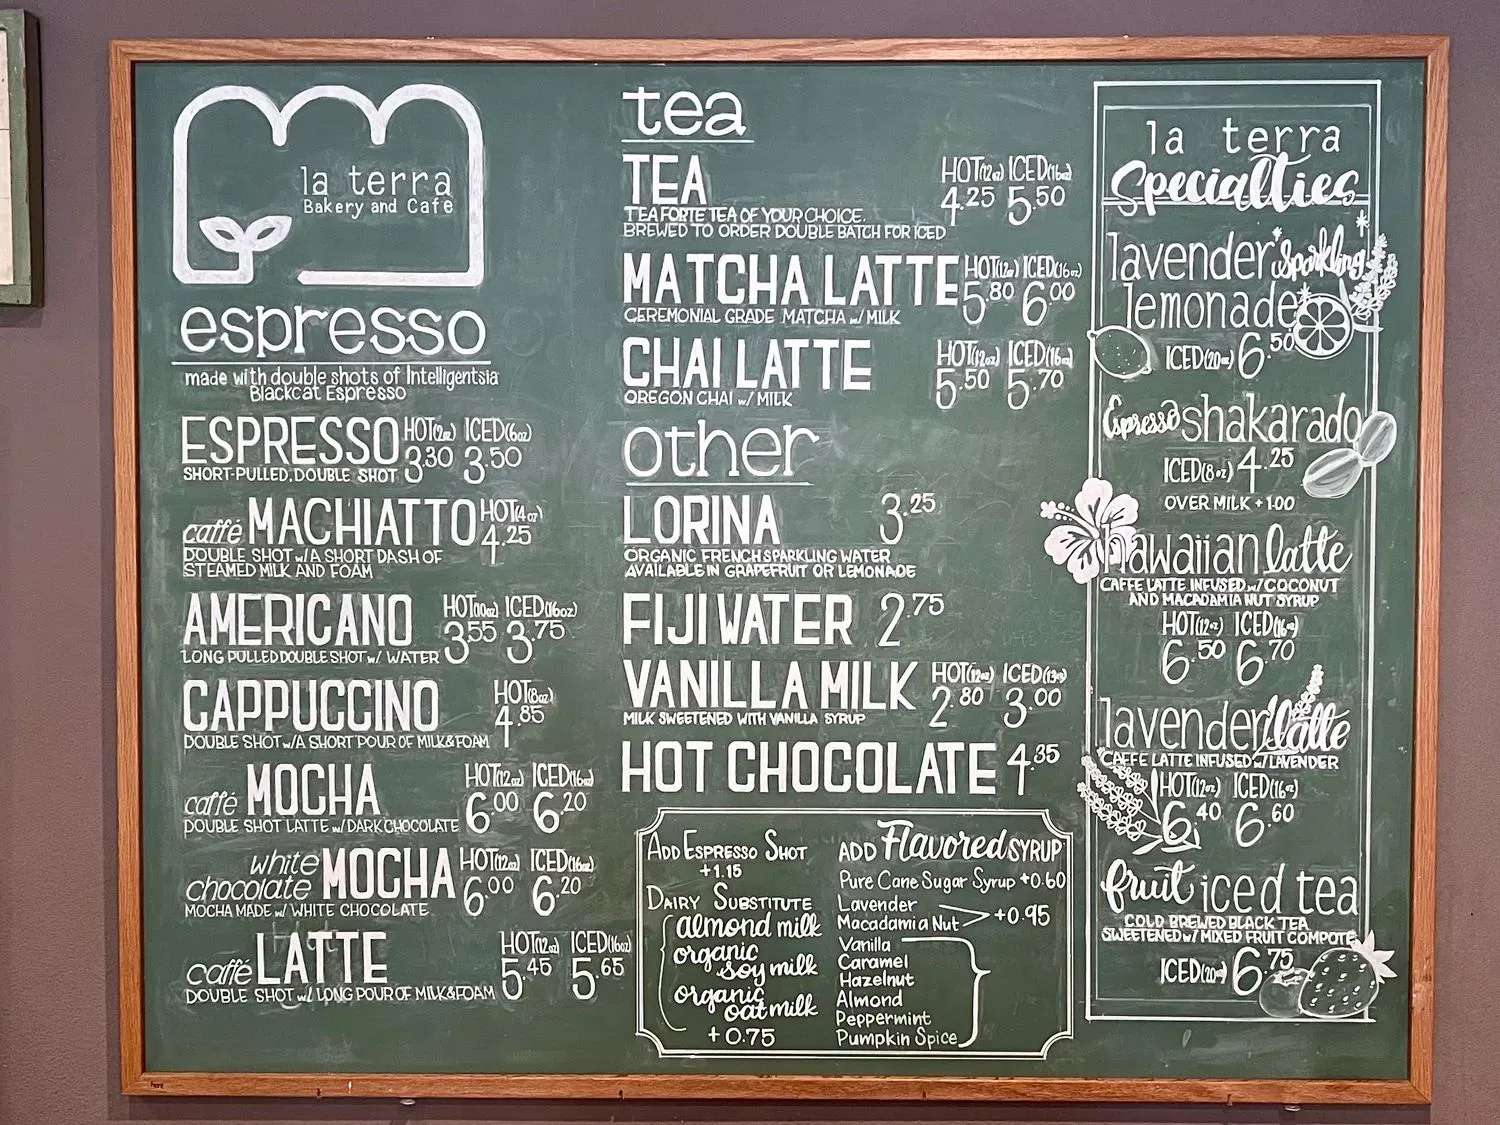 la terra
Bakery and Café
espresso
made with double shots of Intelligentsia
Blackcat Espresso
ESPRESSO HOT(2oz) ICED(6oz)
3.30 3.50
SHORT-PULLED, DOUBLE SHOT
caffé MACHIATTO HOT(4oz)
4.25
DOUBLE SHOT w/A SHORT DASH OF
STEAMED MILK AND FOAM
AMERICANO HOT(10oz) ICED(16oz)
3.55 3.75
LONG PULLED DOUBLE SHOT w/ WATER
CAPPUCCINO HOT(8oz)
4.85
DOUBLE SHOT w/A SHORT POUR OF MILK&FOAM
caffé MOCHA HOT(12oz) ICED(16oz)
6.00 6.20
DOUBLE SHOT LATTE w/DARK CHOCOLATE
white
chocolate MOCHA HOT(12oz) ICED(16oz)
6.00 6.20
MOCHA MADE w/ WHITE CHOCOLATE
caffé LATTE HOT(12oz) ICED(16oz)
5.45 5.65
DOUBLE SHOT w/ LONG POUR OF MILK&FOAM
tea
TEA HOT(12oz) ICED(16oz)
4.25 5.50
TEA FORTE TEA OF YOUR CHOICE,
BREWED TO ORDER DOUBLE BATCH FOR ICED
MATCHA LATTE HOT(12oz) ICED(16oz)
5.80 6.00
CEREMONIAL GRADE MATCHA w/ MILK
CHAI LATTE HOT(12oz) ICED(16oz)
5.50 5.70
OREGON CHAI w/ MILK
other
LORINA 3.25
ORGANIC FRENCH SPARKLING WATER
AVAILABLE IN GRAPEFRUIT OR LEMONADE
FIJI WATER 2.75
VANILLA MILK HOT(12oz) ICED
2.80 3.00
MILK SWEETENED WITH VANILLA SYRUP
HOT CHOCOLATE 4.35
ADD ESPRESSO SHOT
+1.15
DAIRY SUBSTITUTE
almond milk
organic
soy milk
organic
oat milk
+0.75
ADD Flavored SYRUP
Pure Cane Sugar Syrup +0.60
Lavender
Macadamia Nut +0.95
Vanilla
Caramel
Hazelnut
Almond
Peppermint
Pumpkin Spice
la terra
Specialties
lavender sparkling
lemonade
ICED(20oz) 6.50
Espresso shakarado
ICED(8oz) 4.25
OVER MILK +1.00
hawaiian latte
CAFFE LATTE INFUSED w/COCONUT
AND MACADAMIA NUT SYRUP
HOT(12oz) ICED(16oz)
6.50 6.70
lavender latte
CAFFE LATTE INFUSED w/LAVENDER
HOT(12oz) ICED(16oz)
6.40 6.60
fruit iced tea
COLD BREWED BLACK TEA
SWEETENED w/ MIXED FRUIT COMPOTE
ICED(20oz) 6.75